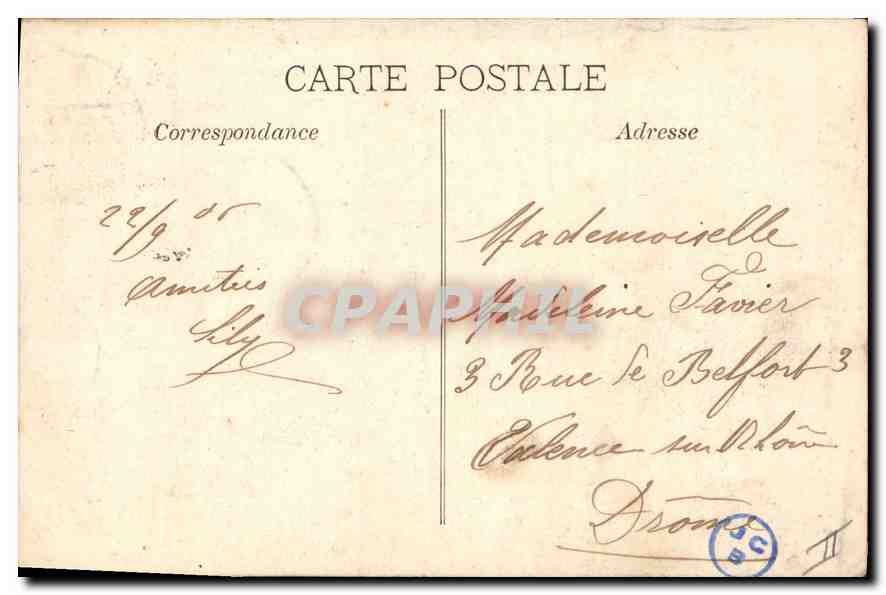 CARTE POSTALE
Correspondance
22/9 05
Amitiés
Lily
Adresse
Mademoiselle
Madeleine Favier
3 Rue de Belfort 3
Valence sur Rhône
Drôme
CPAPHIL
JC
B
II